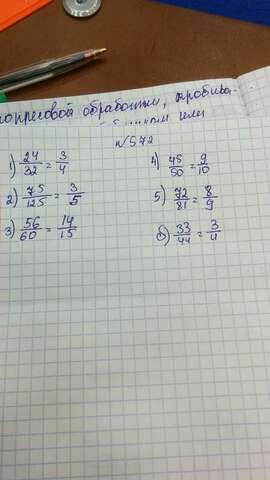 прессовой обработки, пробива-
или
№572
1) 24/32 = 3/4
2) 75/125 = 3/5
3) 56/60 = 14/15
4) 45/50 = 9/10
5) 72/81 = 8/9
6) 33/44 = 3/4